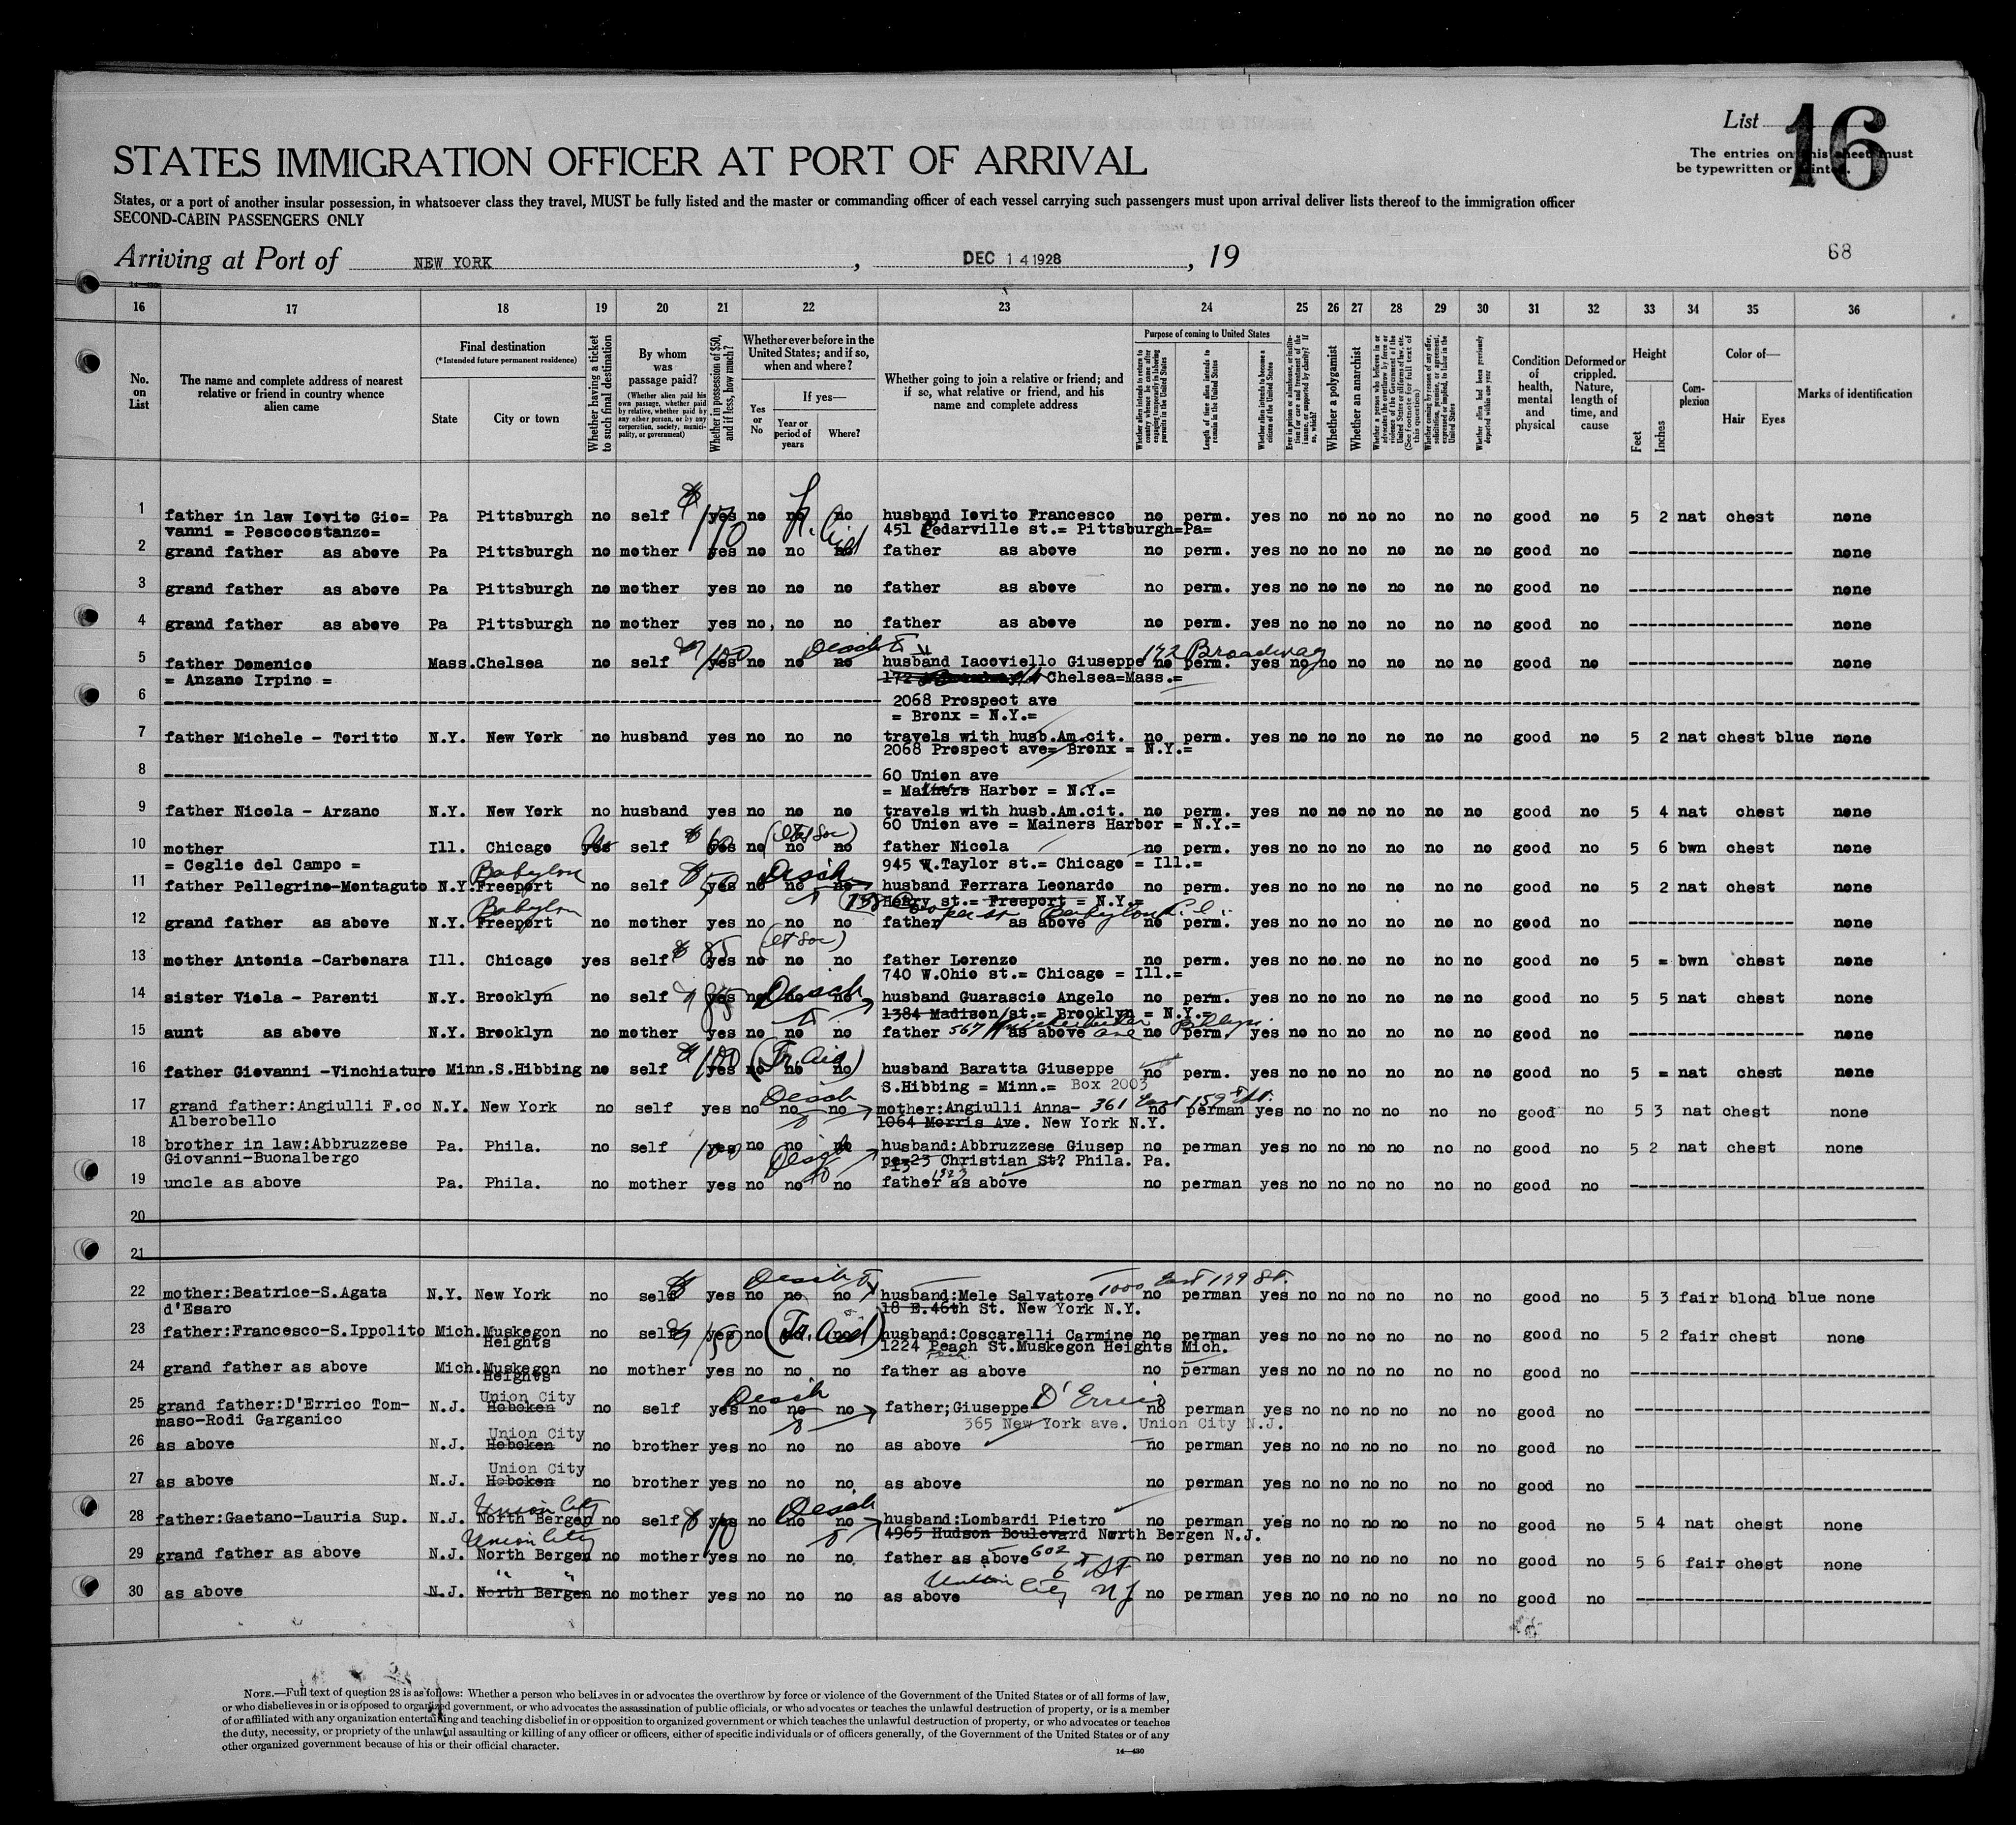 List 16
The entries on this sheet must
be typewritten or printed.
STATES IMMIGRATION OFFICER AT PORT OF ARRIVAL
States, or a port of another insular possession, in whatsoever class they travel, MUST be fully listed and the master or commanding officer of each vessel carrying such passengers must upon arrival deliver lists thereof to the immigration officer
SECOND-CABIN PASSENGERS ONLY
Arriving at Port of NEW YORK, DEC 14 1928, 19
68
16 17 18 19 20 21 22 23 24 25 26 27 28 29 30 31 32 33 34 35 36
No. on List
The name and complete address of nearest relative or friend in country whence alien came
Final destination
(*Intended future permanent residence)
State
City or town
Whether having a ticket to such final destination
By whom was passage paid?
(Whether alien paid his own passage, whether paid by relative, whether paid by any other person, or by any corporation, society, municipality, or government)
Whether in possession of $50, and if less, how much?
Whether ever before in the United States; and if so, when and where?
Yes or No
If yes—
Year or period of years
Where?
Whether going to join a relative or friend; and if so, what relative or friend, and his name and complete address
Purpose of coming to United States
Length of time alien intends to remain in the United States
Whether alien intends to become a citizen of the United States
Whether a polygamist
Whether an anarchist
Condition of health, mental and physical
Deformed or crippled. Nature, length of time, and cause
Height
Feet
Inches
Complexion
Color of—
Hair
Eyes
Marks of identification
1 father in law Iovito Gio= Pa Pittsburgh no self yes no no no husband Iovito Francesco no perm. yes no no no no no no good no 5 2 nat chest none
vanni = Pescocostanzo= 451 Cedarville st.= Pittsburgh=Pa=
2 grand father as above Pa Pittsburgh no mother yes no no no father as above no perm. yes no no no no no no good no none
3 grand father as above Pa Pittsburgh no mother yes no no no father as above no perm. yes no no no no no no good no none
4 grand father as above Pa Pittsburgh no mother yes no no no father as above no perm. yes no no no no no no good no none
5 father Domenico Mass. Chelsea no self yes no no no husband Iacoviello Giuseppe 172 Broadway no perm. yes no no no no no no good no none
= Anzano Irpino = 172 Chelsea=Mass.=
6 2068 Prospect ave
= Bronx = N.Y.=
7 father Michele - Toritto N.Y. New York no husband yes no no no travels with husb.Am.cit. no perm. yes no no no no no no good no 5 2 nat chest blue none
2068 Prospect ave= Bronx = N.Y.=
8 60 Union ave
= Mainers Harbor = N.Y.=
9 father Nicola - Arzano N.Y. New York no husband yes no no no travels with husb.Am.cit. no perm. yes no no no no no no good no 5 4 nat chest none
60 Union ave = Mainers Harbor = N.Y.=
10 mother Ill. Chicago yes self yes no no no father Nicola no perm. yes no no no no no no good no 5 6 bwn chest none
= Ceglie del Campo = 945 W.Taylor st.= Chicago = Ill.=
Babylon
11 father Pellegrino-Montaguto N.Y. Freeport no self yes no no no husband Ferrara Leonardo no perm. yes no no no no no no good no 5 2 nat chest none
Henry st.= Freeport = N.Y.=
Babylon
12 grand father as above N.Y. Freeport no mother yes no no no father as above no perm. yes no no no no no no good no none
13 mother Antonia -Carbonara Ill. Chicago yes self yes no no no father Lorenzo no perm. yes no no no no no no good no 5 = bwn chest none
740 W.Ohio st.= Chicago = Ill.=
14 sister Viola - Parenti N.Y. Brooklyn no self yes no no no husband Guarascio Angelo no perm. yes no no no no no no good no 5 5 nat chest none
1384 Madison st.= Brooklyn = N.Y.=
15 aunt as above N.Y. Brooklyn no mother yes no no no father as above no perm. yes no no no no no no good no none
16 father Giovanni -Vinchiature Minn. S.Hibbing no self yes no no no husband Baratta Giuseppe no perm. yes no no no no no no good no 5 = nat chest none
S.Hibbing = Minn.= Box 2003
17 grand father:Angiulli F.co N.Y. New York no self yes no no no mother:Angiulli Anna- 361 East 159th St. no perman yes no no no no no no good no 5 3 nat chest none
Alberobello 1064 Morris Ave. New York N.Y.
18 brother in law:Abbruzzese Pa. Phila. no self yes no no no husband:Abbruzzese Giusep no perman yes no no no no no no good no 5 2 nat chest none
Giovanni-Buonalbergo pe-23 Christian St? Phila. Pa.
19 uncle as above Pa. Phila. no mother yes no no no father as above no perman yes no no no no no no good no
20
21
22 mother:Beatrice-S.Agata N.Y. New York no self yes no no no husband:Mele Salvatore 1000 East 179 St. no perman yes no no no no no no good no 5 3 fair blond blue none
d'Esaro 18 E.46th St. New York N.Y.
23 father:Francesco-S.Ippolito Mich. Muskegon Heights no self yes no no no husband:Coscarelli Carmine no perman yes no no no no no no good no 5 2 fair chest none
1224 Peach St.Muskegon Heights Mich.
24 grand father as above Mich. Muskegon Heights no mother yes no no no father as above no perman yes no no no no no no good no
Union City
25 grand father:D'Errico Tom- N.J. Hoboken no self yes no no no father;Giuseppe D'Errico no perman yes no no no no no no good no
maso-Rodi Garganico 365 New York ave. Union City N.J.
Union City
26 as above N.J. Hoboken no brother yes no no no as above no perman yes no no no no no no good no
Union City
27 as above N.J. Hoboken no brother yes no no no as above no perman yes no no no no no no good no
Union City
28 father:Gaetano-Lauria Sup. N.J. North Bergen no self yes no no no husband:Lombardi Pietro no perman yes no no no no no no good no 5 4 nat chest none
4965 Hudson Boulevard North Bergen N.J.
Union City
29 grand father as above N.J. North Bergen no mother yes no no no father as above 602 no perman yes no no no no no no good no 5 6 fair chest none
6th St
30 as above N.J. North Bergen no mother yes no no no as above Union City NJ no perman yes no no no no no no good no
NOTE.—Full text of question 28 is as follows: Whether a person who believes in or advocates the overthrow by force or violence of the Government of the United States or of all forms of law,
or who disbelieves in or is opposed to organized government, or who advocates the assassination of public officials, or who advocates or teaches the unlawful destruction of property, or is a member
of or affiliated with any organization entertaining and teaching disbelief in or opposition to organized government or which teaches the unlawful destruction of property, or who advocates or teaches
the duty, necessity, or propriety of the unlawful assaulting or killing of any officer or officers, either of specific individuals or of officers generally, of the Government of the United States or of any
other organized government because of his or their official character.
14—430